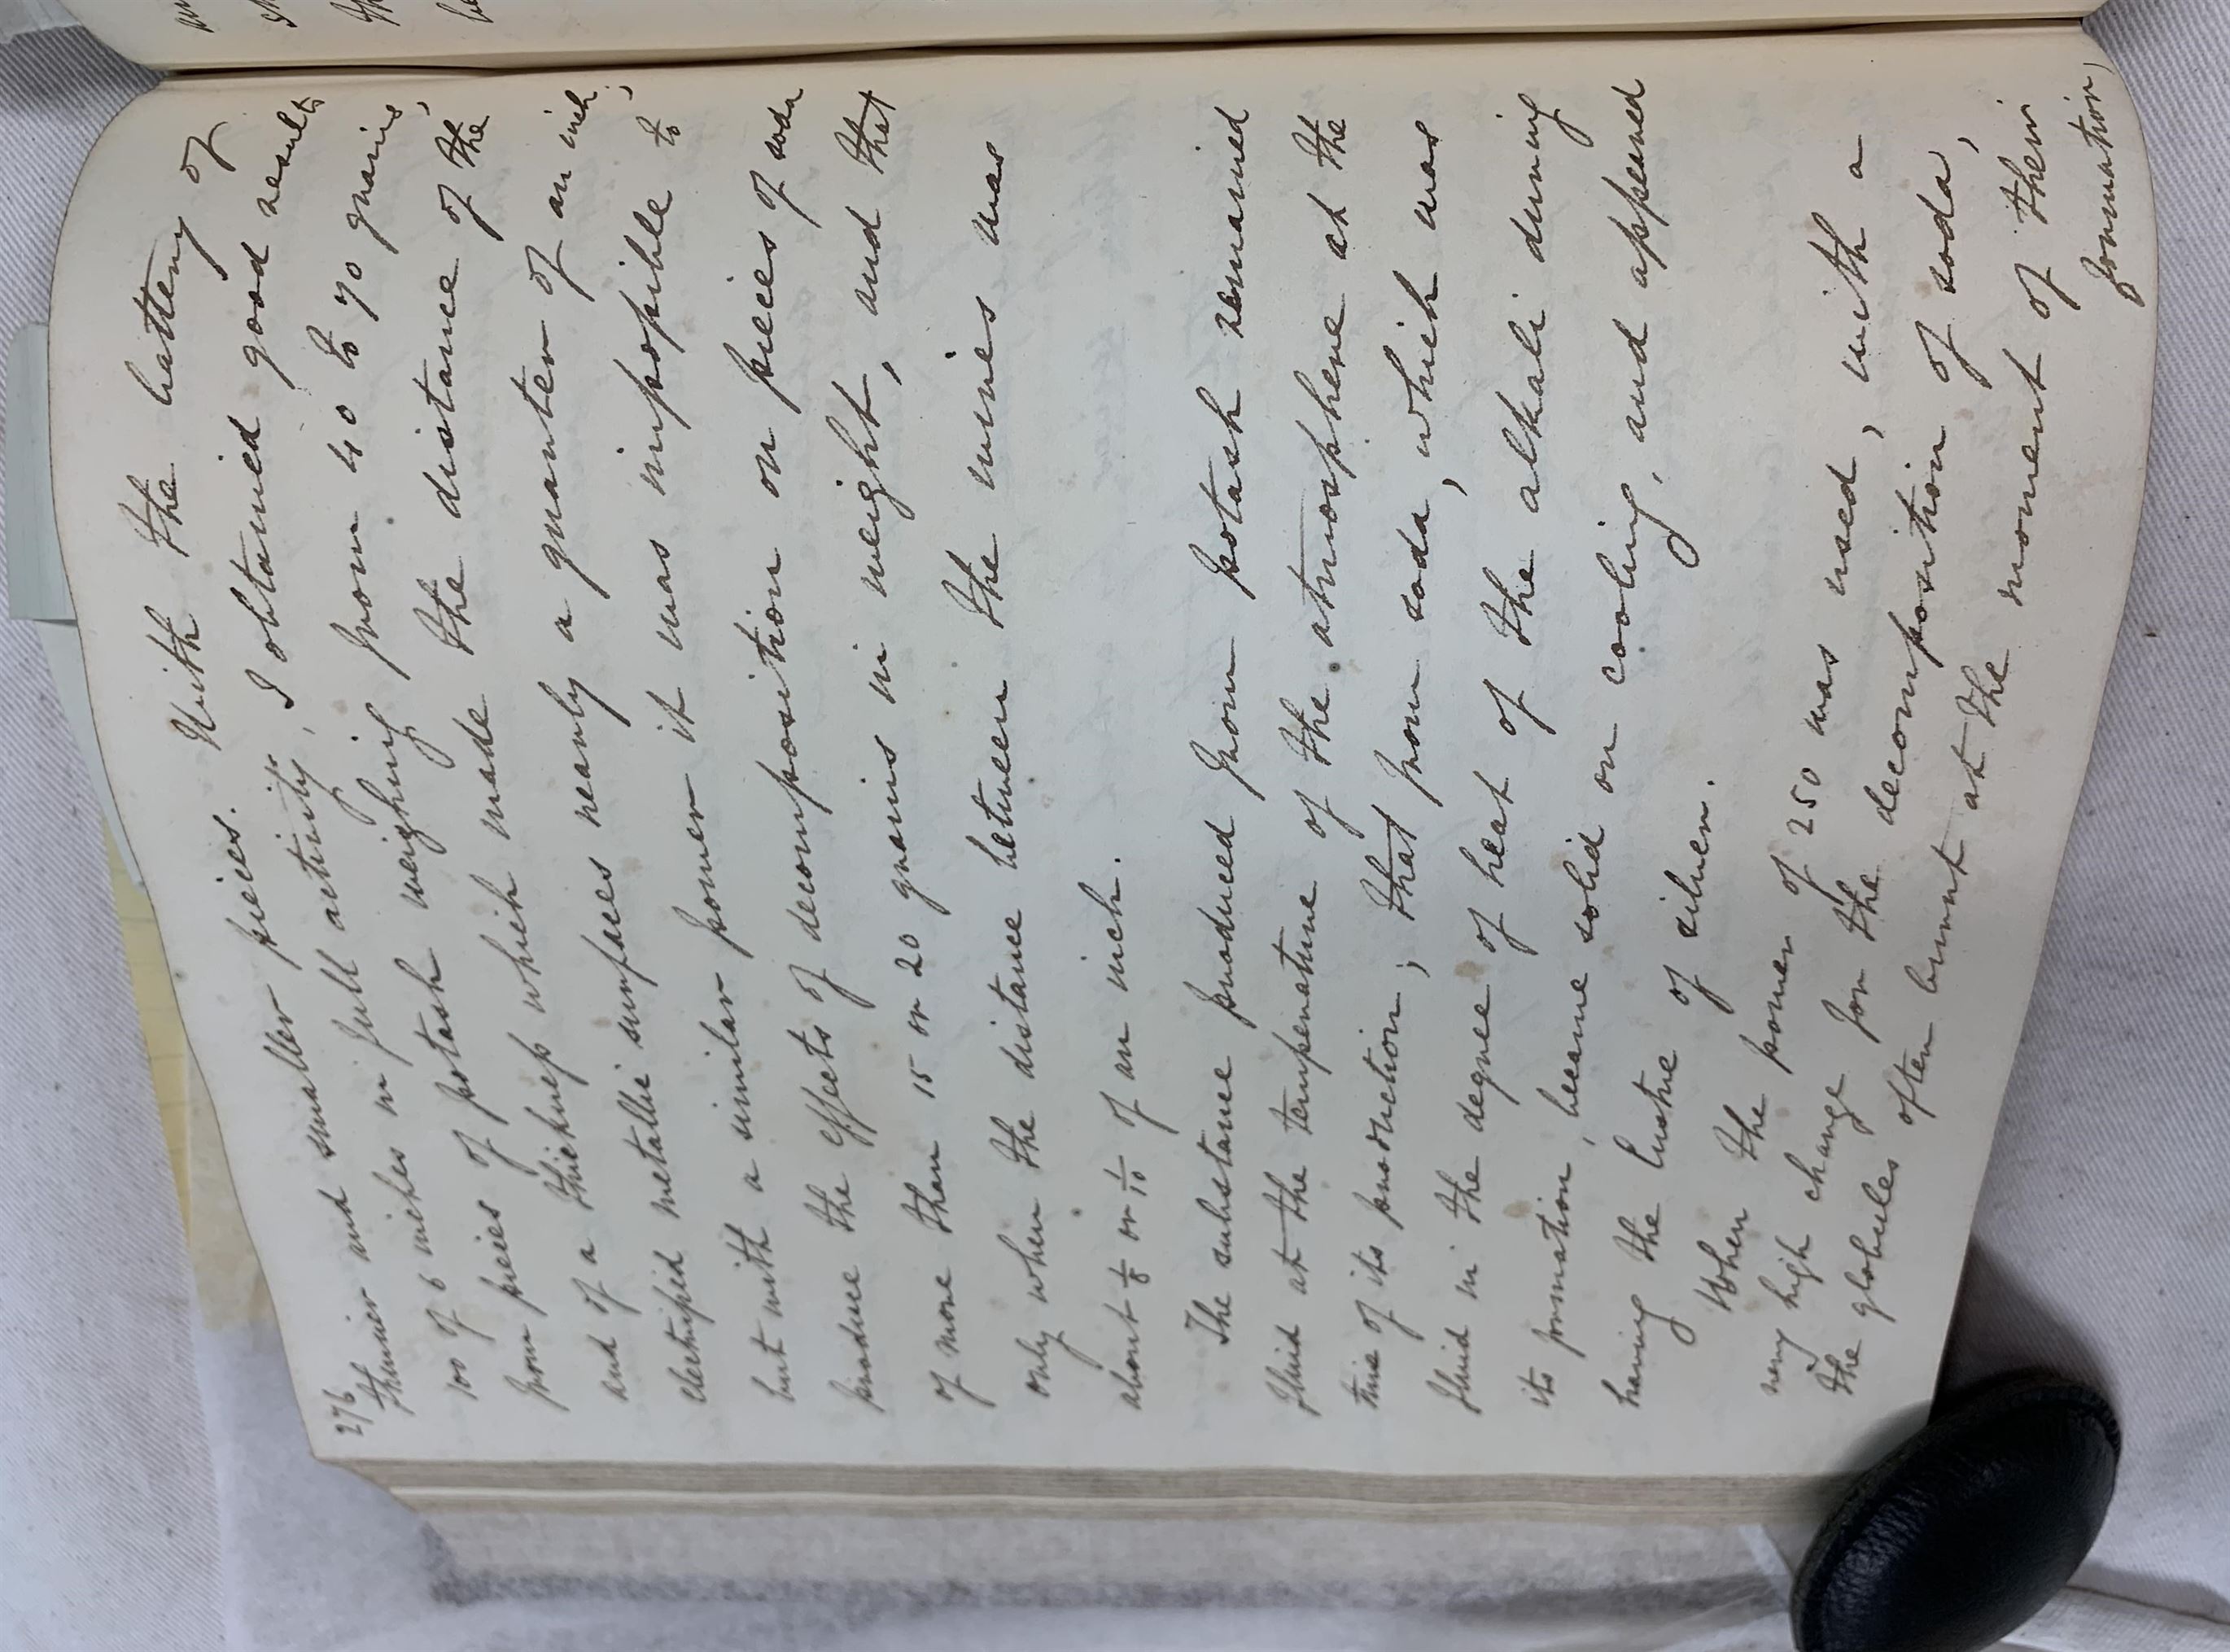 276
thinner and smaller pieces. With the battery of
100 of 6 inches in full activity, I obtained good results
from pieces of potash weighing from 40 to 70 grains,
and of a thickneſs which made the distance of the
electrified metallic surfaces nearly a quarter of an inch;
but with a similar power it was impoſsible to
produce the effects of decomposition on pieces of soda
of more than 15 or 20 grains in weight, and that
only when the distance between the wires was
about 1/8 or 1/10 of an inch.
The substance produced from potash remained
fluid at the temperature of the atmosphere at the
time of its production; that from soda, which was
fluid in the degree of heat of the alkali during
its formation, became solid on cooling, and appeared
having the lustre of silver.
When the power of 250 was used, with a
very high charge for the decomposition of soda,
the globules often burnt at the moment of their
formation,